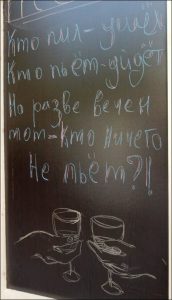 Кто пил - ушёл
Кто пьёт - уйдёт
Но разве вечен
тот - кто ничего
Не пьёт?!